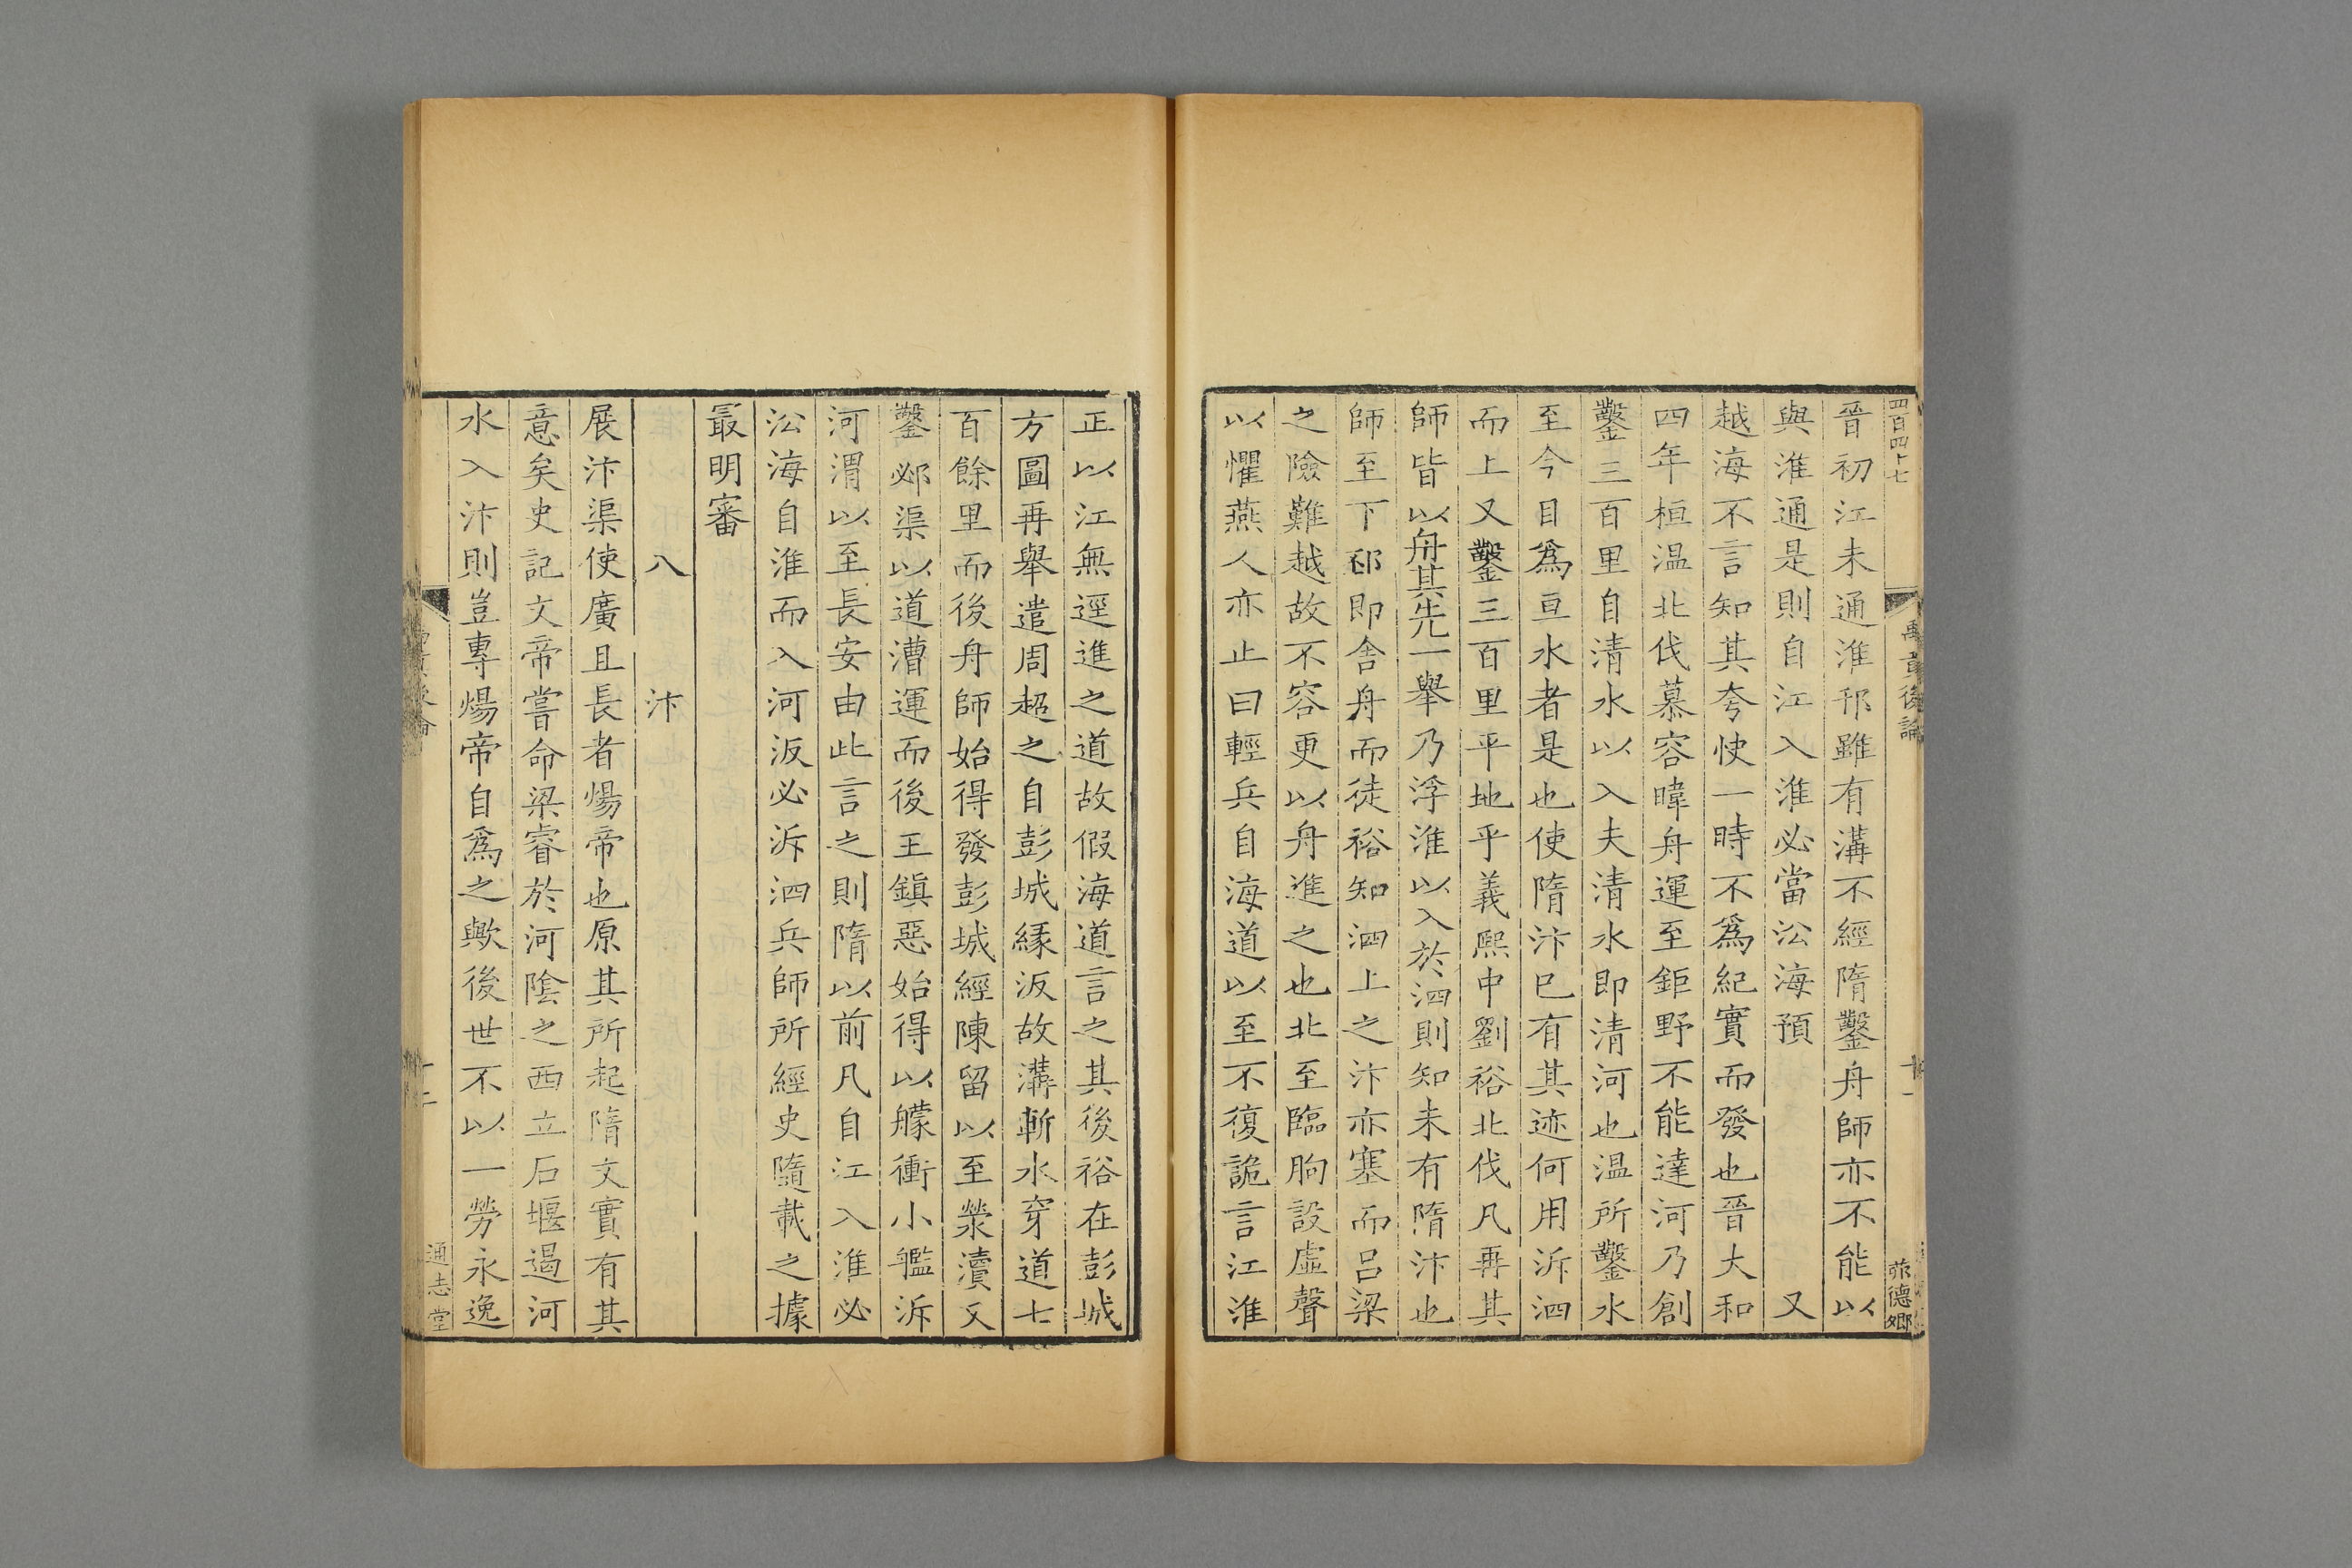 四百四十七
禹貢後論
十一
晉初江未通淮邗雖有溝不經隋鑿舟師亦不能以
與淮通是則自江入淮必當㳂海預 又
越海不言知其夸快一時不為紀實而發也晉大和
四年桓温北伐慕容暐舟運至鉅野不能達河乃創
鑿三百里自清水以入夫清水即清河也温所鑿水
至今目爲亘水者是也使隋汴巳有其迹何用泝泗
而上又鑿三百里平地乎義熙中劉裕北伐凡再其
師皆以舟其先一舉乃浮淮以入於泗則知未有隋汴也
師至下邳即舎舟而徒裕知泗上之汴亦塞而吕梁
之險難越故不容更以舟進之也北至臨朐設虛聲
以懼燕人亦止曰輕兵自海道以至不復詭言江淮
正以江無逕進之道故假海道言之其後裕在彭城
方圖再舉遣周超之自彭城緣汳故溝斬水穿道七
百餘里而後舟師始得發彭城經陳留以至滎瀆又
鑿渠以道漕運而後王鎮惡始得以艨衝小艦泝
河渭以至長安由此言之則隋以前凡自江入淮必
㳂海自淮而入河汳必泝泗兵師所經史隨載之據
最明審
八 汴
展汴渠使廣且長者煬帝也原其所起隋文實有其
意矣史記文帝嘗命梁睿於河陰之西立石堰遏河
水入汴則豈專煬帝自爲之歟後世不以一勞永逸
通志堂